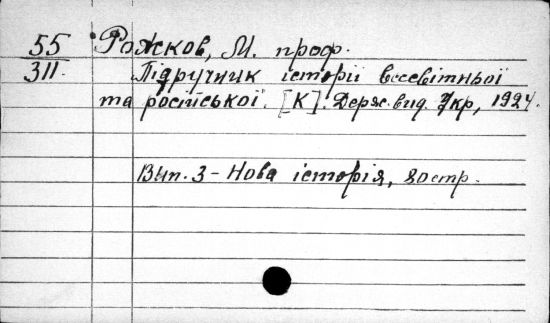 55 Рожков, М. проф.
311. Підручник історії всесвітньої
та російської. [К]. Держ. вид. Укр, 1924.
Вип. 3 - Нова історія, 80 стр.